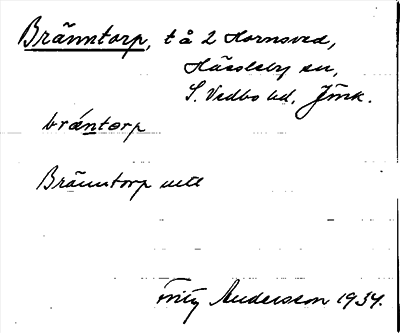 Bränntorp, t å 2 Hornsved,
Hässleby sn,
S. Vedbo hd, Jönk.
bräntorp
Bränntorp
Fritz Andersson 1934.